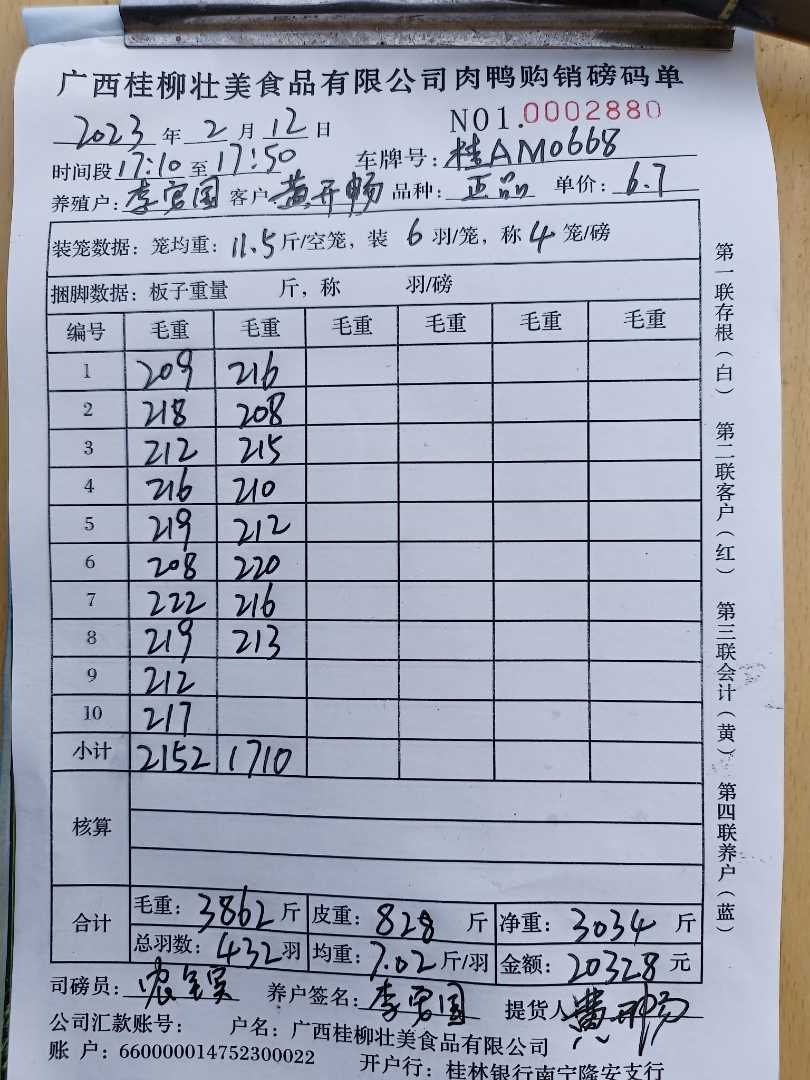 广西桂柳壮美食品有限公司肉鸭购销磅码单
2023 年 2 月 12 日 NO1.0002880
时间段 17:10 至 17:50 车牌号: 桂AM0668
养殖户: 李宏国 客户 黄开畅 品种: 正品 单价: 6.7
装笼数据: 笼均重: 11.5 斤/空笼, 装 6 羽/笼, 称 4 笼/磅
捆脚数据: 板子重量 斤, 称 羽/磅
编号 毛重 毛重 毛重 毛重 毛重 毛重
1 209 216
2 218 208
3 212 215
4 216 210
5 219 212
6 208 220
7 222 216
8 219 213
9 212
10 217
小计 2152 1710
核算
合计 毛重: 3862 斤 皮重: 828 斤 净重: 3034 斤
总羽数: 432 羽 均重: 7.02 斤/羽 金额: 20328 元
司磅员: 养户签名: 李宏国 提货人 黄开畅
公司汇款账号: 户名: 广西桂柳壮美食品有限公司
账 户: 660000014752300022 开户行: 桂林银行南宁隆安支行
第一联存根(白) 第二联客户(红) 第三联会计(黄) 第四联养户(蓝)